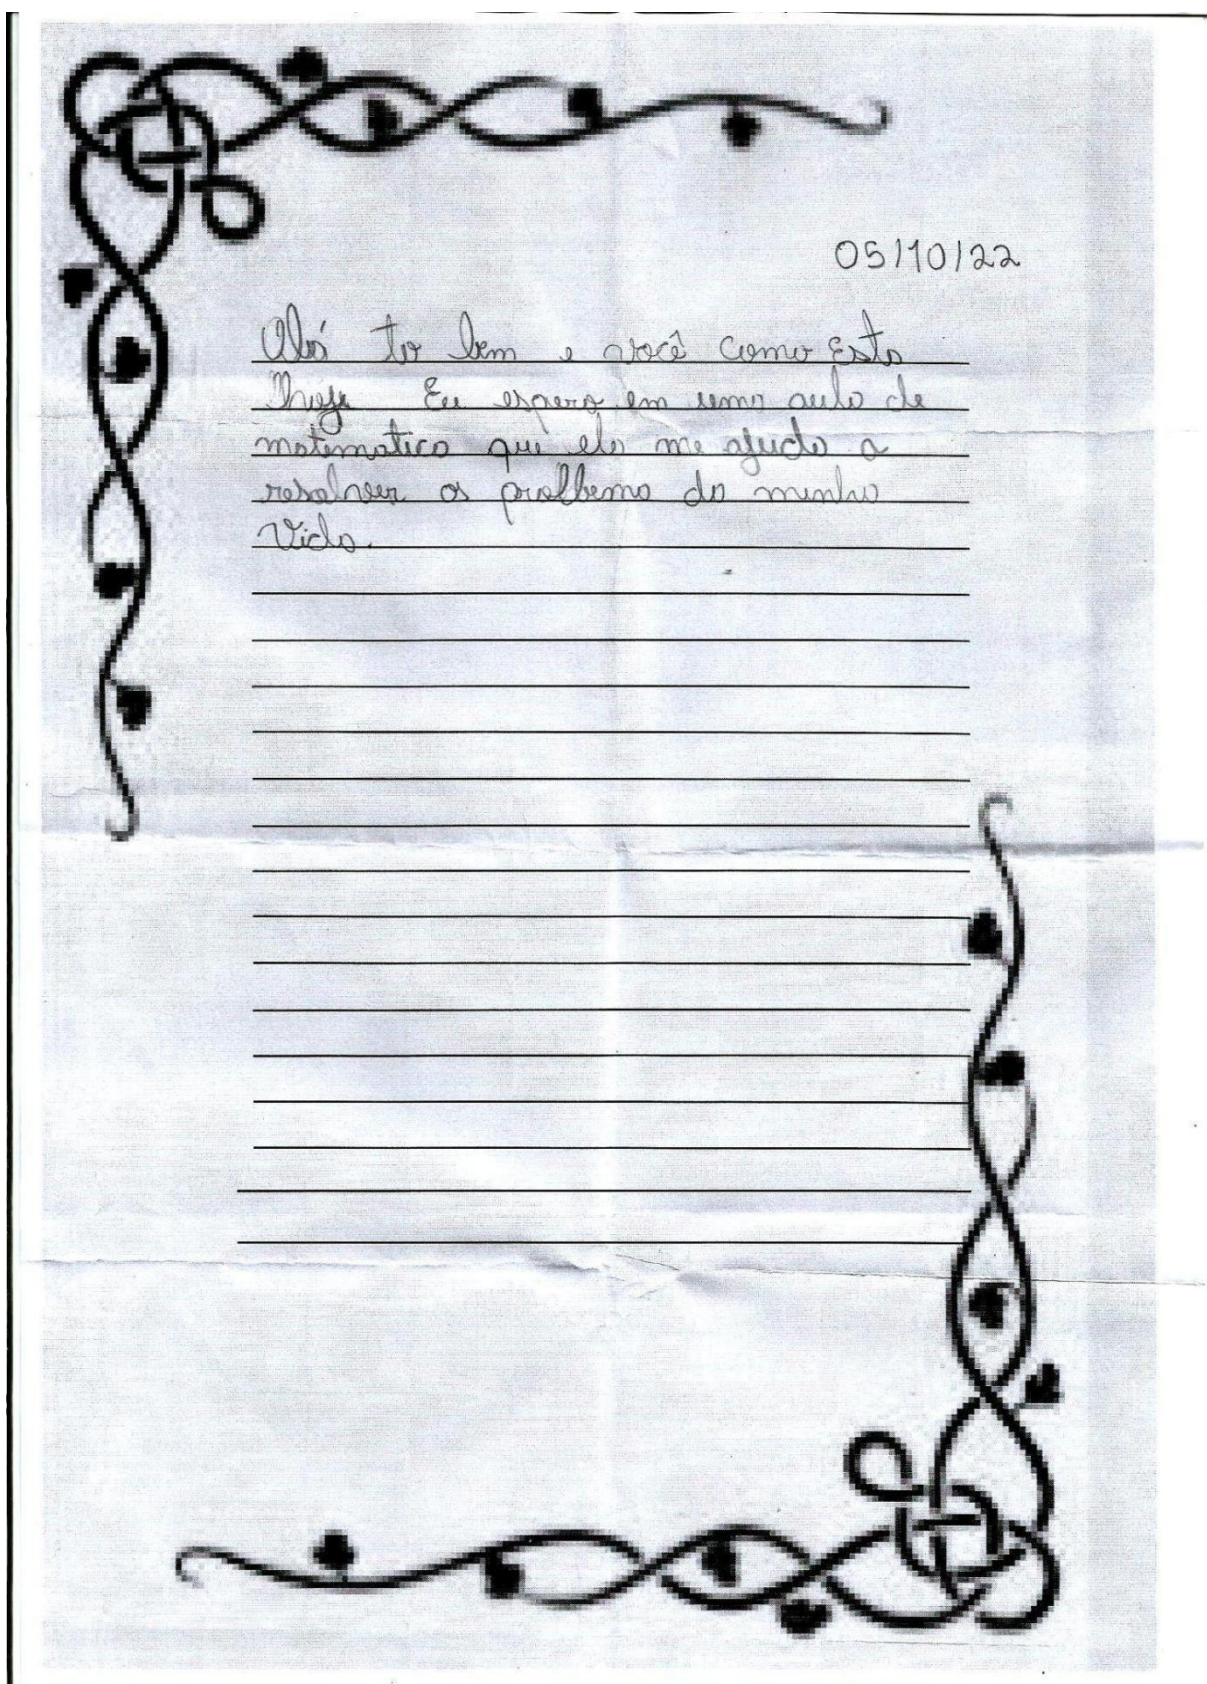 05/10/22
Olá to bem e você como Esta
Hoje Eu espero em uma aula de
matematica que ela me ajuda a
resolver os problema da minha
Vida.